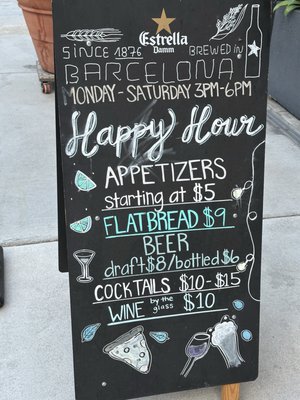 Estrella
Damm
SINCE 1876 BREWED IN
BARCELONA
MONDAY - SATURDAY 3PM-6PM
Happy Hour
APPETIZERS
starting at $5
FLATBREAD $9
BEER
draft $8/bottled $6
COCKTAILS $10-$15
WINE by the glass $10